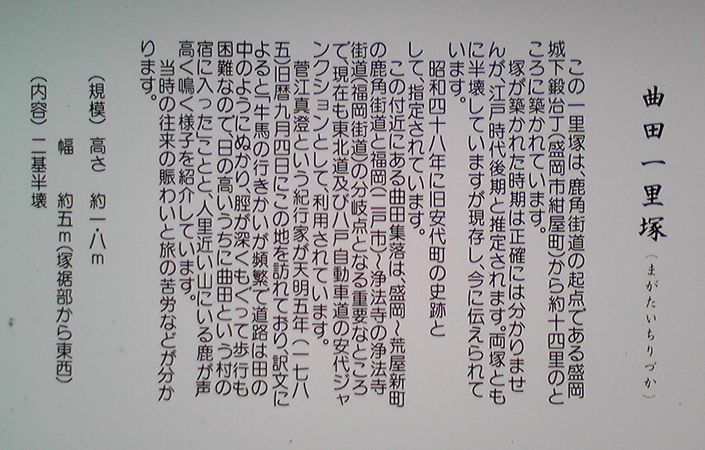 曲田一里塚(まがたいちりづか)
この一里塚は、鹿角街道の起点である盛岡
城下鍛冶丁(盛岡市紺屋町)から約十四里のと
ころに築かれています。
塚が築かれた時期は正確には分かりませ
んが、江戸時代後期と推定されます。両塚とも
に半壊していますが現存し、今に伝えられて
います。
昭和四十八年に旧安代町の史跡と
して、指定されています。
この付近にある曲田集落は、盛岡～荒屋新町
の鹿角街道と福岡(二戸市)～浄法寺の浄法寺
街道(福岡街道)の分岐点となる重要なところ
で、現在も東北道及び八戸自動車道の安代ジャ
ンクションとして、利用されています。
菅江真澄という紀行家が天明五年(一七八
五)旧暦九月四日にこの地を訪れており、訳文に
よると「牛馬の行きかいが頻繁で道路は田の
中のようにぬかり、脛が深くもぐって歩行も
困難なので、日の高いうちに曲田という村の
宿に入った」ことと、人里近い山にいる鹿が声
高く鳴く様子を紹介しています。
当時の往来の賑わいと旅の苦労などが分か
ります。
(規模) 高さ 約一・八m
幅 約五m(塚裾部から東西)
(内容) 二基半壊